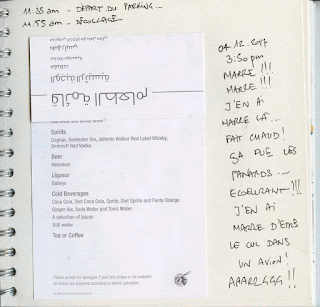 11:35 am - DÉPART DU PARKING...
11:55 am - DÉCOLLAGE
قائمة الطعام
Spirits
Cognac, Beefeater Gin, Johnnie Walker Red Label Whisky,
Smirnoff Red Vodka
Beer
Heineken
Liqueur
Baileys
Cold Beverages
Coca Cola, Diet Coca Cola, Sprite, Diet Sprite and Fanta Orange
Ginger Ale, Soda Water and Tonic Water
A selection of juices
Still water
Tea or Coffee
Please accept our apologies if your first choice is not available.
All dishes are prepared according to Islamic principles.
04.12.2017
3:50 pm
MARRE !!!
MARRE !!!
J'EN AI
MARRE LÀ...
FAIT CHAUD!
ÇA PUE LES
PANARDS...
ECOEURANT!!!
J'EN AI
MARRE D'ETRE
LE CUL DANS
UN AVION!
AAARRGGG !!